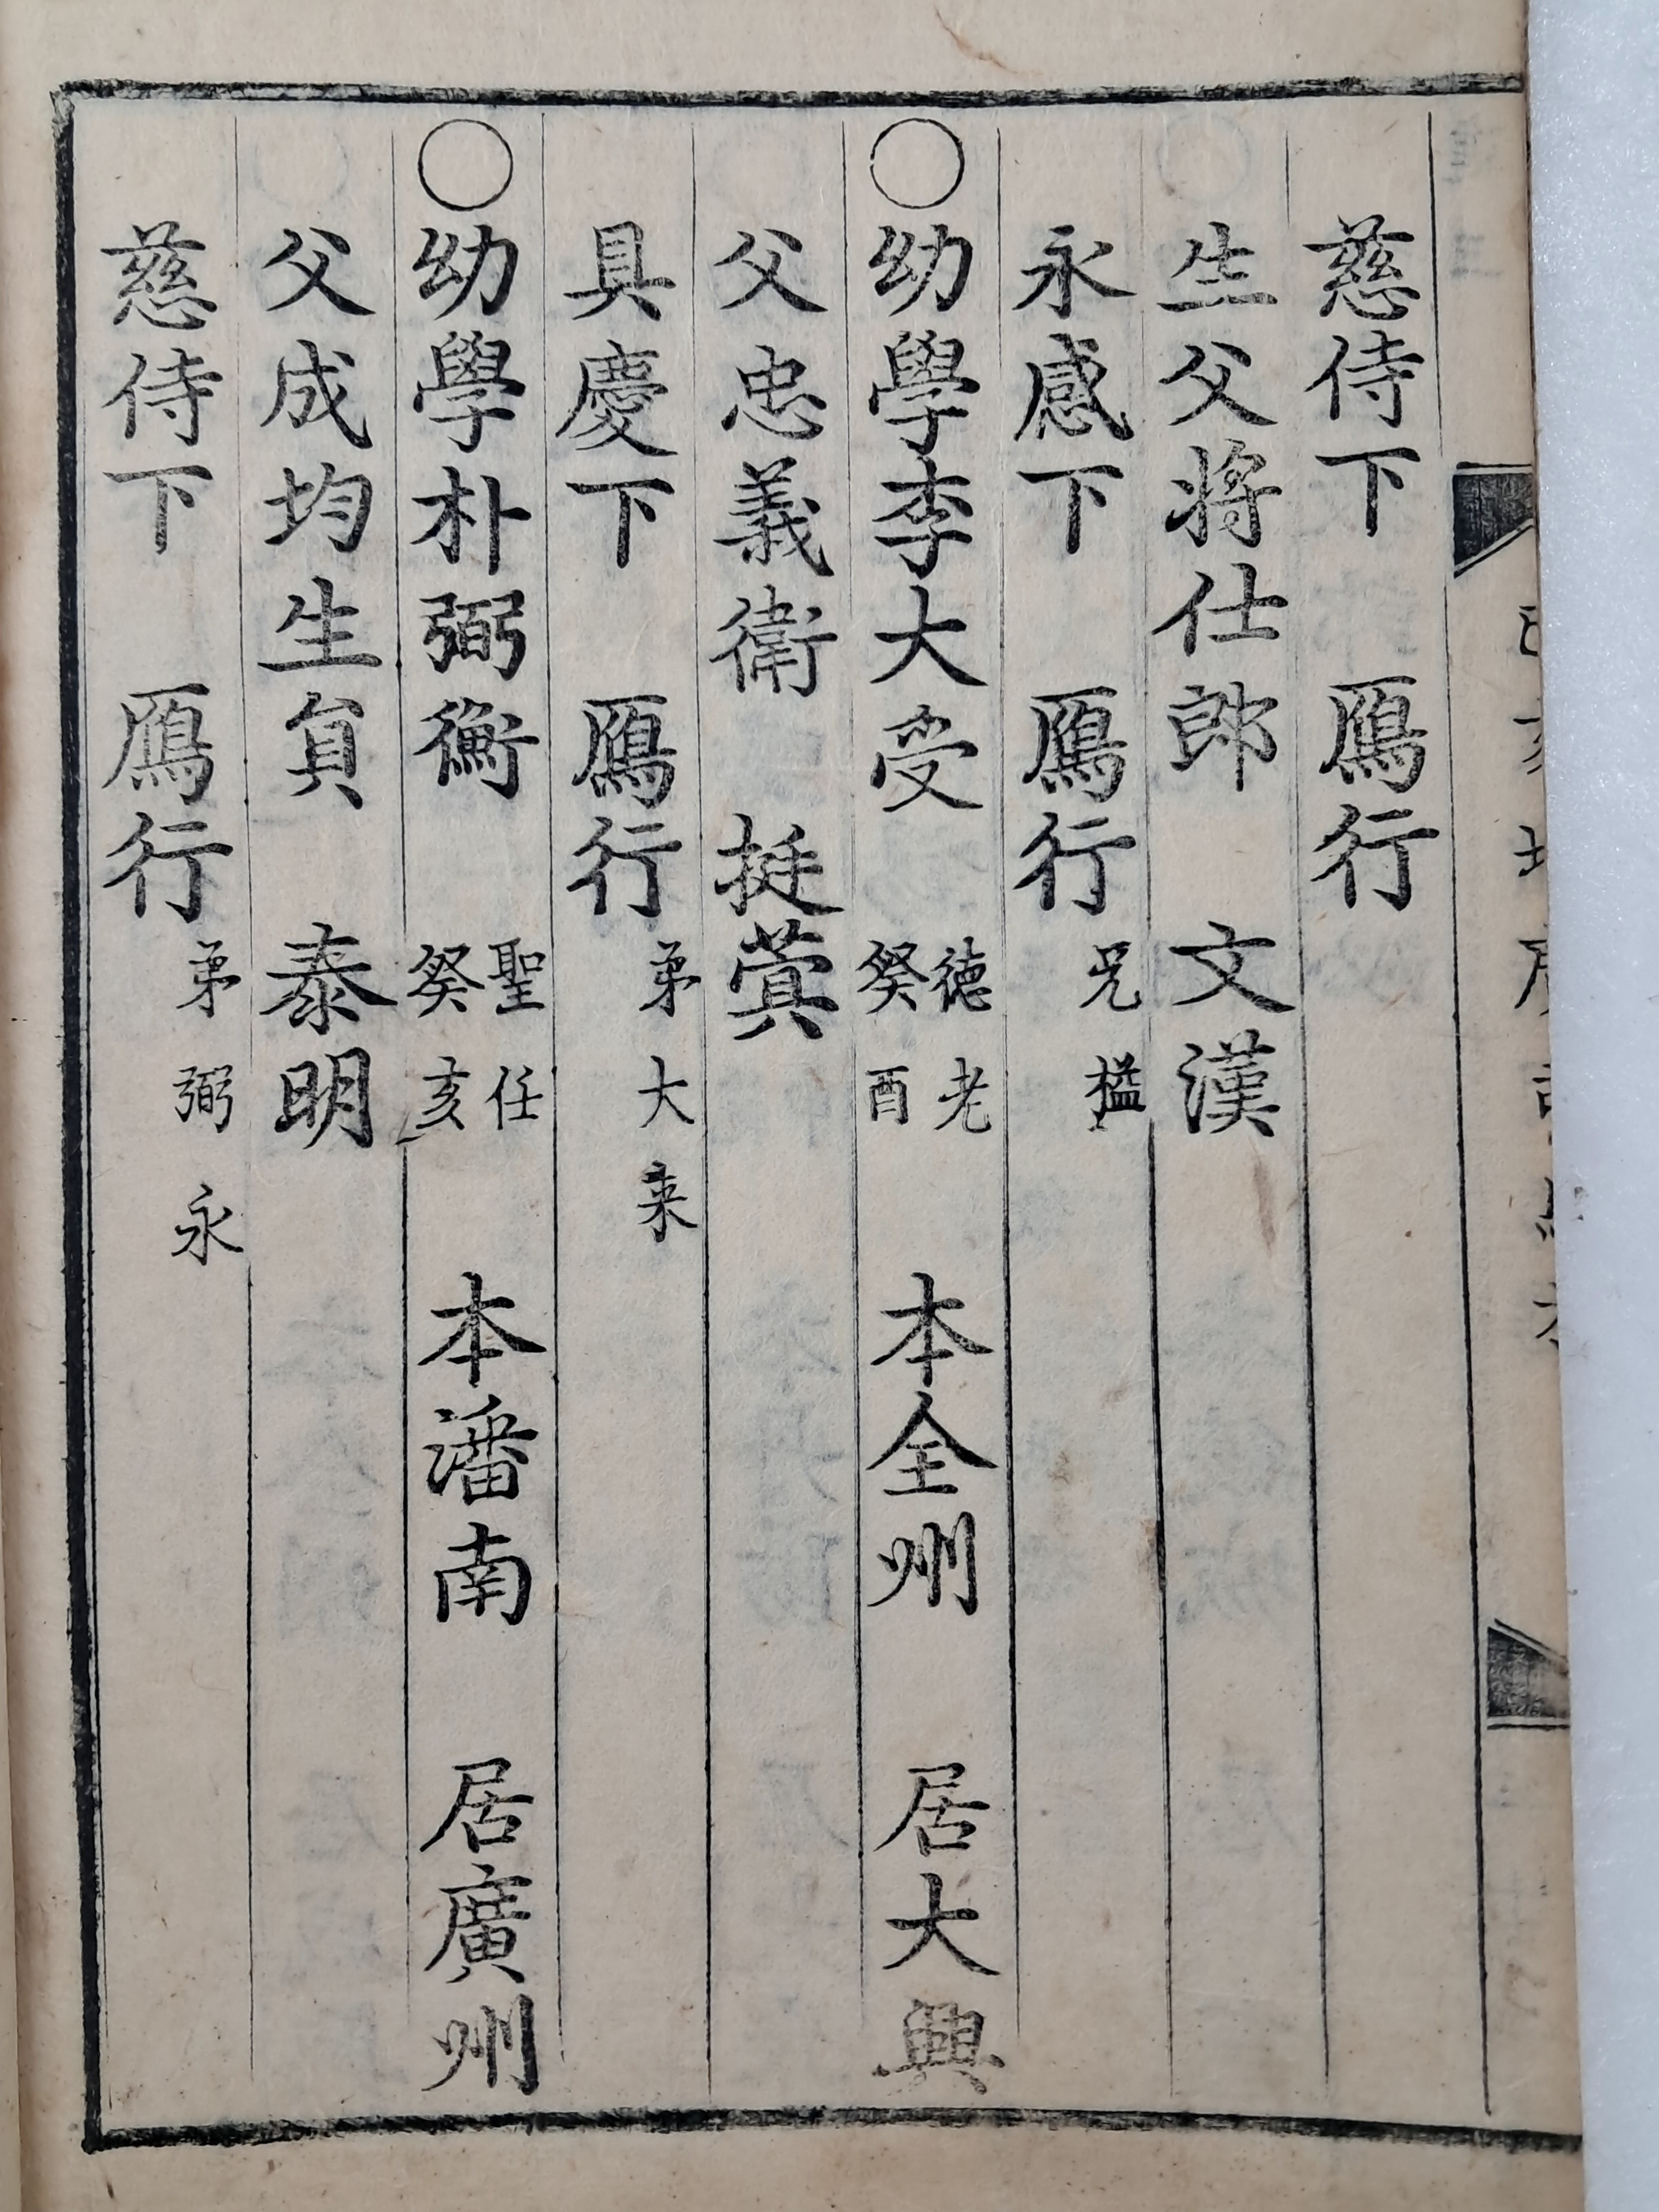 慈侍下 鴈行
生父將仕郎 文漢
永感下 鴈行 兄 楹
○幼學李大受 德老 癸酉 本全州 居大興
父忠義衛 挺蓂
具慶下 鴈行 弟 大来
○幼學朴弼衡 聖任 癸亥 本潘南 居廣州
父成均生員 泰明
慈侍下 鴈行 弟 弼永